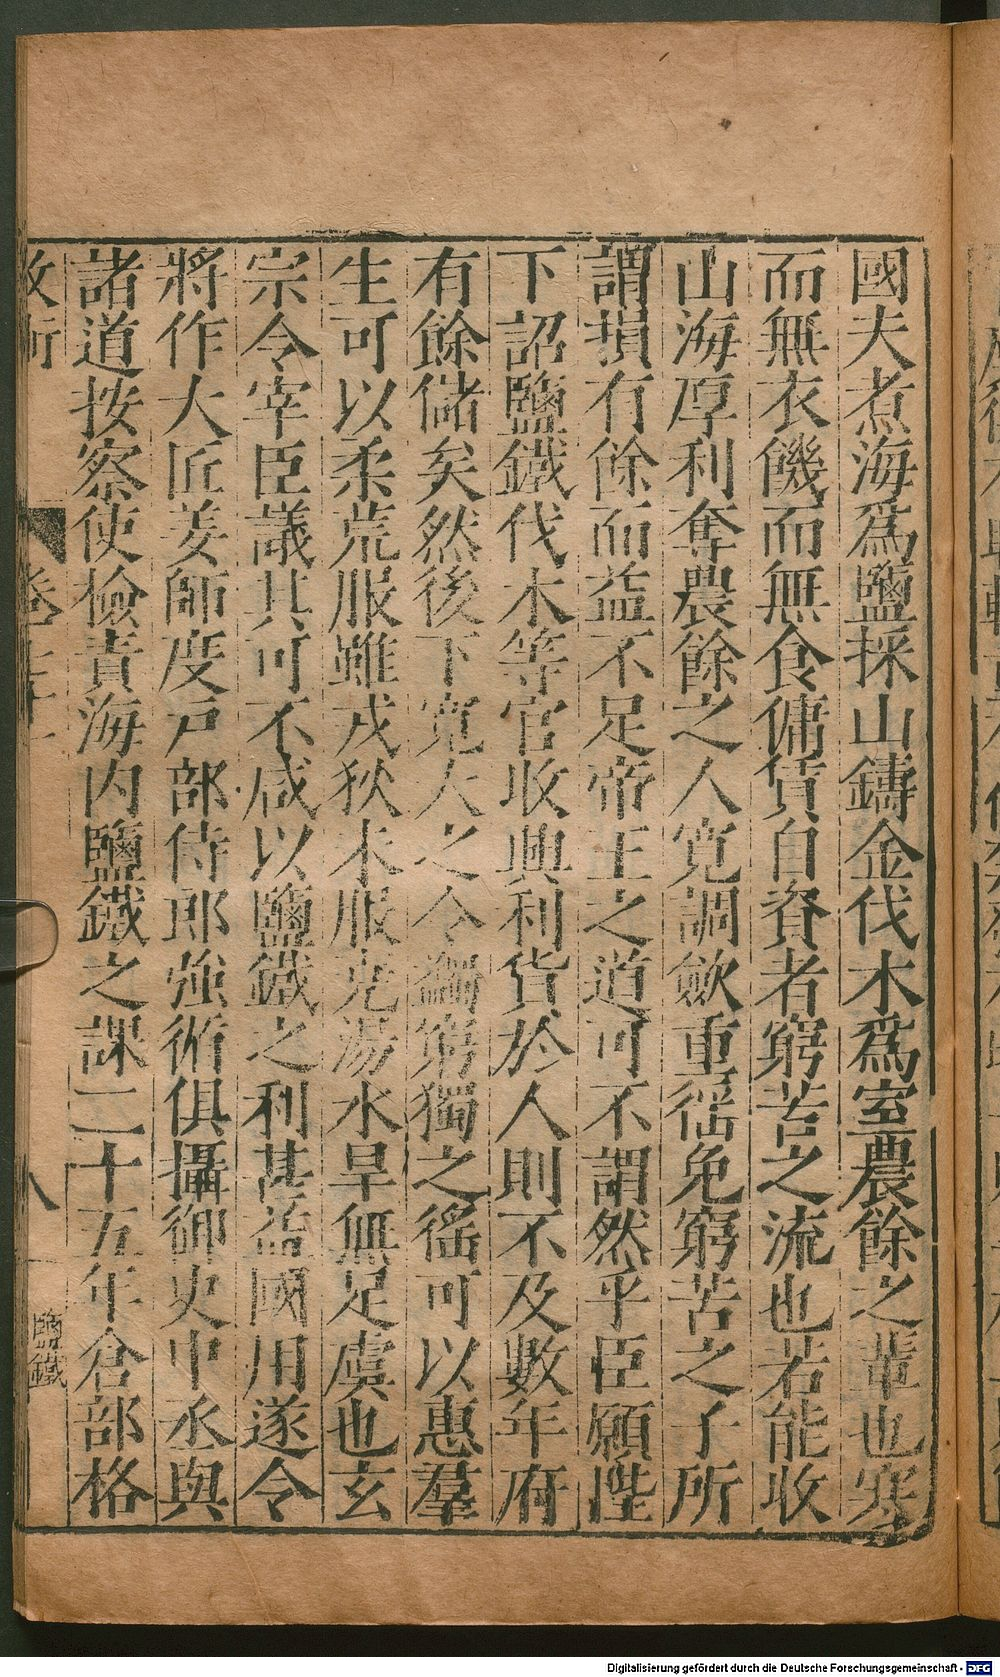 國夫煮海爲鹽採山鑄金伐木爲室農餘之輩也寒
而無衣饑而無食傭賃自資者窮苦之流也若能收
山海厚利奪農餘之人寬調歛重徭免窮苦之子所
謂損有餘而益不足帝王之道可不謂然乎臣願陛
下詔鹽鐵伐木等官收興利貨於人則不及數年府
有餘儲矣然後下寬大之令蠲窮獨之徭可以惠羣
生可以柔荒服雖戎狄未服堯湯水旱無足虞也玄
宗令宰臣議其可不咸以鹽鐵之利甚益國用遂令
將作大匠姜師度戸部侍郎強循俱攝御史中丞與
諸道按察使檢責海内鹽鐵之課二十五年倉部格
八
鹽鐵
Digitalisierung gefördert durch die Deutsche Forschungsgemeinschaft - DFG